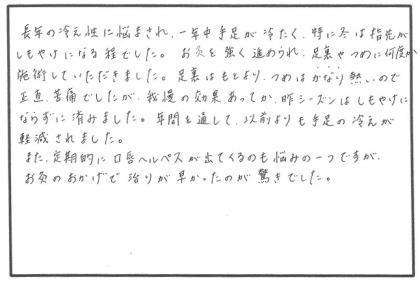 長年の冷え性に悩まされ、一年中手足が冷たく、特に冬は指先が
しもやけになる程でした。 お灸を強く進められ、足裏やつめに何度か
施術していただきました。足裏はもとより、つめはかなり熱いので
正直、苦痛でしたが、我慢の効果あってか、昨シーズンはしもやけに
ならずに済みました。年間を通して、以前よりも手足の冷えが
軽減されました。
また、定期的に口唇ヘルペスが出てくるのも悩みの一つですが、
お灸のおかげで治りが早かったのが驚きでした。